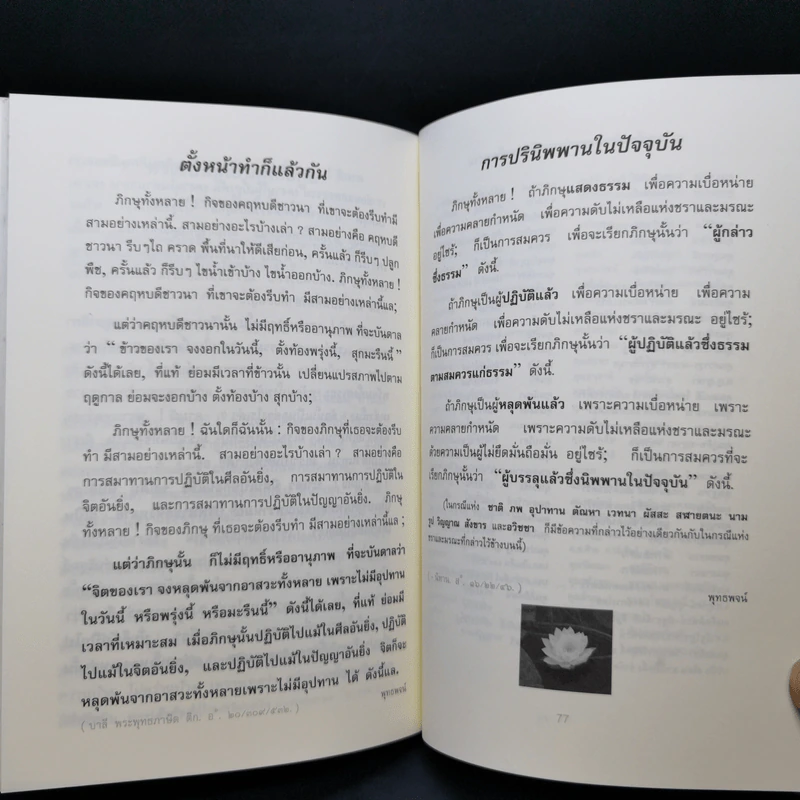 ตั้งหน้าทำก็แล้วกัน
ภิกษุทั้งหลาย ! กิจของคฤหบดีชาวนา ที่เขาจะต้องรีบทำมี
สามอย่างเหล่านี้. สามอย่างอะไรบ้างเล่า ? สามอย่างคือ คฤหบดี
ชาวนา รีบๆไถ คราด พื้นที่นาให้ดีเสียก่อน, ครั้นแล้ว ก็รีบๆ ปลูก
พืช, ครั้นแล้ว ก็รีบๆ ไขน้ำเข้าบ้าง ไขน้ำออกบ้าง. ภิกษุทั้งหลาย !
กิจของคฤหบดีชาวนา ที่เขาจะต้องรีบทำ มีสามอย่างเหล่านี้แล;
แต่ว่าคฤหบดีชาวนานั้น ไม่มีฤทธิ์หรืออานุภาพ ที่จะบันดาล
ว่า “ข้าวของเรา จงงอกในวันนี้, ตั้งท้องพรุ่งนี้, สุกมะรืนนี้”
ดังนี้ได้เลย, ที่แท้ ย่อมมีเวลาที่ข้าวนั้น เปลี่ยนแปรสภาพไปตาม
ฤดูกาล ย่อมจะงอกบ้าง ตั้งท้องบ้าง สุกบ้าง;
ภิกษุทั้งหลาย ! ฉันใดก็ฉันนั้น : กิจของภิกษุที่เธอจะต้องรีบ
ทำ มีสามอย่างเหล่านี้. สามอย่างอะไรบ้างเล่า ? สามอย่างคือ
การสมาทานการปฏิบัติในศีลอันยิ่ง, การสมาทานการปฏิบัติใน
จิตอันยิ่ง, และการสมาทานการปฏิบัติในปัญญาอันยิ่ง. ภิกษุ
ทั้งหลาย ! กิจของภิกษุ ที่เธอจะต้องรีบทำ มีสามอย่างเหล่านี้แล ;
แต่ว่าภิกษุนั้น ก็ไม่มีฤทธิ์หรืออานุภาพ ที่จะบันดาลว่า
“จิตของเรา จงหลุดพ้นจากอาสวะทั้งหลาย เพราะไม่มีอุปทาน
ในวันนี้ หรือพรุ่งนี้ หรือมะรืนนี้” ดังนี้ได้เลย, ที่แท้ ย่อมมี
เวลาที่เหมาะสม เมื่อภิกษุนั้นปฏิบัติไปแม้ในศีลอันยิ่ง, ปฏิบัติ
ไปแม้ในจิตอันยิ่ง, และปฏิบัติไปแม้ในปัญญาอันยิ่ง จิตก็จะ
หลุดพ้นจากอาสวะทั้งหลายเพราะไม่มีอุปทาน ได้ ดังนี้แล.
พุทธพจน์
(บาลี พระพุทธภาษิต ติก. อํ. ๒๐/๓๐๙/๕๓๒.)
การปรินิพพานในปัจจุบัน
ภิกษุทั้งหลาย ! ถ้าภิกษุแสดงธรรม เพื่อความเบื่อหน่าย
เพื่อความคลายกำหนัด เพื่อความดับไม่เหลือแห่งชราและมรณะ
อยู่ไซร้; ก็เป็นการสมควร เพื่อจะเรียกภิกษุนั้นว่า “ผู้กล่าว
ซึ่งธรรม” ดังนี้.
ถ้าภิกษุเป็นผู้ปฏิบัติแล้ว เพื่อความเบื่อหน่าย เพื่อความ
คลายกำหนัด เพื่อความดับไม่เหลือแห่งชราและมรณะ อยู่ไซร้;
ก็เป็นการสมควร เพื่อจะเรียกภิกษุนั้นว่า “ผู้ปฏิบัติแล้วซึ่งธรรม
ตามสมควรแก่ธรรม” ดังนี้.
ถ้าภิกษุเป็นผู้หลุดพ้นแล้ว เพราะความเบื่อหน่าย เพราะ
ความคลายกำหนัด เพราะความดับไม่เหลือแห่งชราและมรณะ
ด้วยความเป็นผู้ไม่ยึดมั่นถือมั่น อยู่ไซร้; ก็เป็นการสมควรที่จะ
เรียกภิกษุนั้นว่า “ผู้บรรลุแล้วซึ่งนิพพานในปัจจุบัน” ดังนี้.
(ในกรณีแห่ง ชาติ ภพ อุปาทาน ตัณหา เวทนา ผัสสะ สฬายตนะ นาม
รูป วิญญาณ สังขาร และอวิชชา ก็มีข้อความที่กล่าวไว้อย่างเดียวกันกับในกรณีแห่ง
ชราและมรณะที่กล่าวไว้ข้างบนนี้)
นิทาน อํ. ๑๖/๒๒/๔๖.)
พุทธพจน์
77